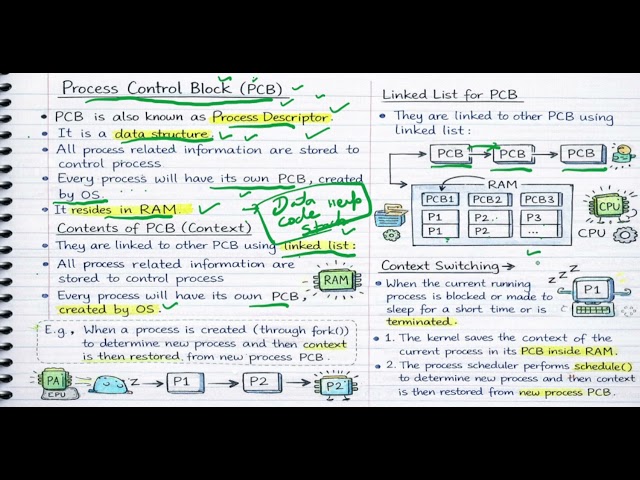 Process Control Block (PCB)
PCB is also known as Process Descriptor.
It is a data structure
All process related information are stored to
control process
Every process will have its own PCB, created
by OS.
It resides in RAM.
Data heap
code
Stack
Contents of PCB (Context)
They are linked to other PCB using linked list:
All process related information are
stored to control process
RAM
Every process will have its own PCB,
created by OS.
E.g., When a process is created (through fork())
to determine new process and then context
is then restored from new process PCB.
PA
CPU
Z
P1
P2
P2
Linked List for PCB
They are linked to other PCB using
linked list:
PCB
PCB
PCB
RAM
PCB1 PCB2 PCB3
P1 P2.. P3
P1 P2 ...
CPU
CPU
Context Switching
When the current running
process is blocked or made to
sleep for a short time or is
terminated.
z z Z
P1
1. The kernel saves the context of the
current process in its PCB inside RAM.
2. The process scheduler performs schedule()
to determine new process and then context
is then restored from new process PCB.